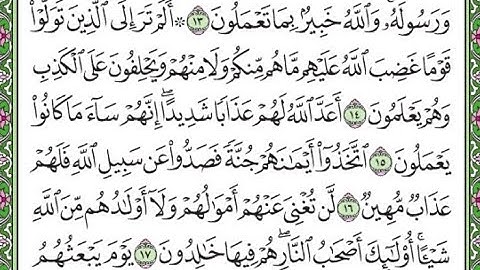 وَرَسُولَهُۥۚ وَٱللَّهُ خَبِيرُۢ بِمَا تَعۡمَلُونَ ١٣ ۞ أَلَمۡ تَرَ إِلَى ٱلَّذِينَ تَوَلَّوۡاْ
قَوۡمًا غَضِبَ ٱللَّهُ عَلَيۡهِم مَّا هُم مِّنكُمۡ وَلَا مِنۡهُمۡ وَيَحۡلِفُونَ عَلَى ٱلۡكَذِبِ
وَهُمۡ يَعۡلَمُونَ ١٤ أَعَدَّ ٱللَّهُ لَهُمۡ عَذَابٗا شَدِيدًاۖ إِنَّهُمۡ سَآءَ مَا كَانُواْ
يَعۡمَلُونَ ١٥ ٱتَّخَذُوٓاْ أَيۡمَٰنَهُمۡ جُنَّةٗ فَصَدُّواْ عَن سَبِيلِ ٱللَّهِ فَلَهُمۡ
عَذَابٞ مُّهِينٞ ١٦ لَّن تُغۡنِيَ عَنۡهُمۡ أَمۡوَٰلُهُمۡ وَلَآ أَوۡلَٰدُهُم مِّنَ ٱللَّهِ
شَيۡـًٔاۚ أُوْلَٰٓئِكَ أَصۡحَٰبُ ٱلنَّارِۖ هُمۡ فِيهَا خَٰلِدُونَ ١٧ يَوۡمَ يَبۡعَثُهُمُ